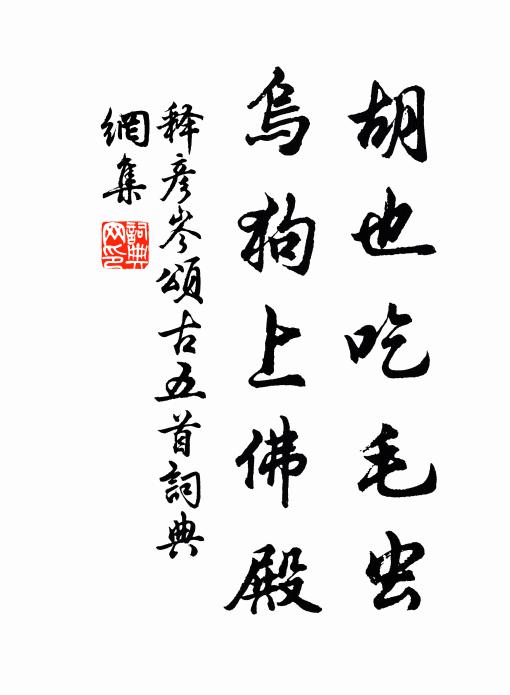 胡也吃毛虫
乌狗上佛殿
释彦岑頌古五首詞典
網集
詞典
网印